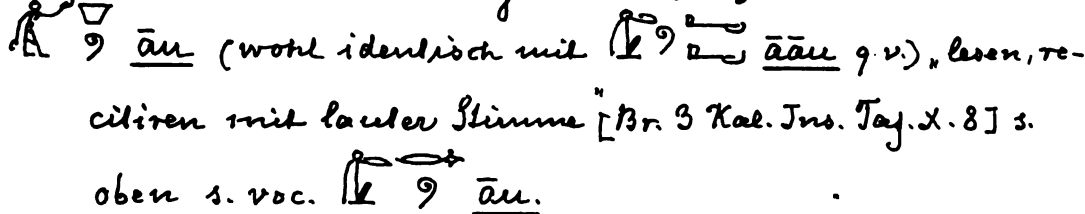 āu (wohl identisch mit āāu q.v.) „lesen, re-
citiren mit lauter Stimme" [Br. 3 Kal. Ins. Taf. X. 8] s.
oben s. voc. āu.